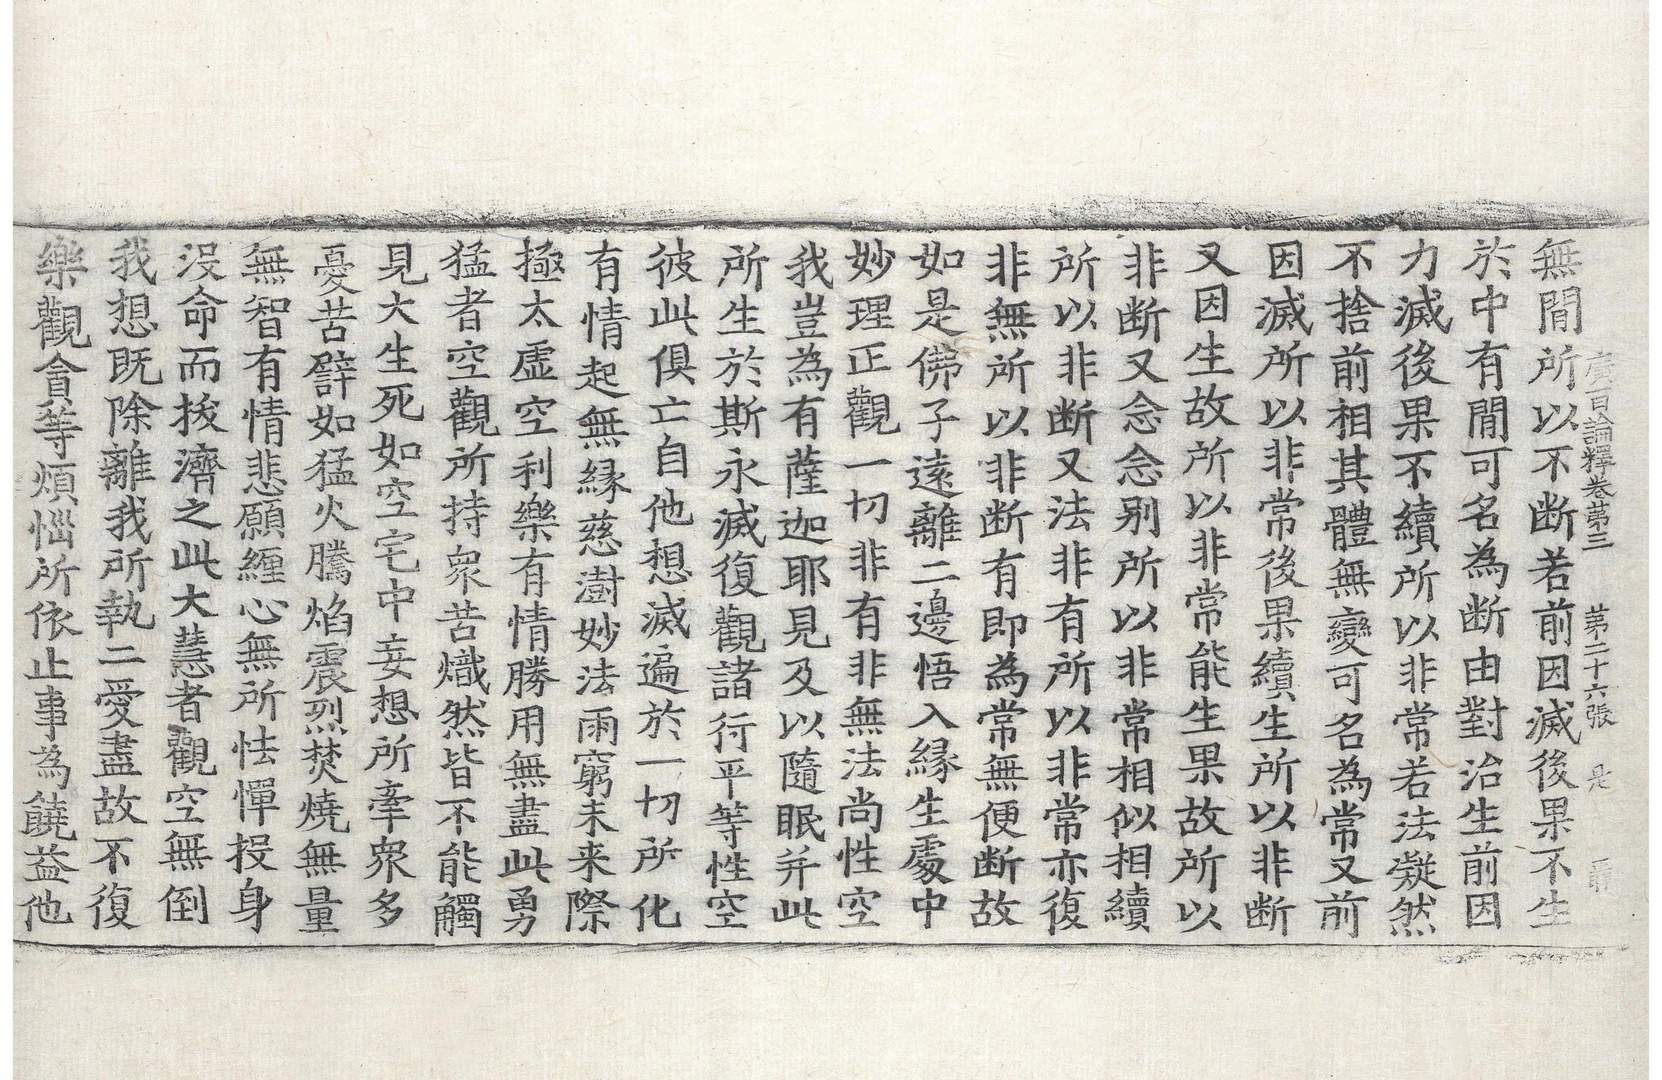 無間所以不断若前因滅後果不生
廣百論釋卷苐三　苐二十六張　是
於中有間可名為断由對治生前因
力滅後果不續所以非常若法凝然
不捨前相其體無變可名為常又前
因滅所以非常後果續生所以非断
又因生故所以非常能生果故所以
非断又念念别所以非常相似相續
所以非断又法非有所以非常亦復
非無所以非断有即為常無便断故
如是佛子遠離二邊悟入縁生處中
妙理正觀一切非有非無法尚性空
我豈為有薩迦耶見及以隨眠并此
所生於斯永滅復觀諸行平等性空
彼此俱亡自他想滅遍於一切所化
有情起無縁慈澍妙法雨窮未来際
極太虛空利樂有情勝用無盡此勇
猛者空觀所持衆苦熾然皆不能觸
見大生死如空宅中妄想所牽衆多
憂苦譬如猛火騰焰震烈焚燒無量
無智有情悲願纒心無所怯憚投身
沒命而拔濟之此大慧者觀空無倒
我想既除離我所執二愛盡故不復
樂觀貪等煩惱所依止事為饒益他